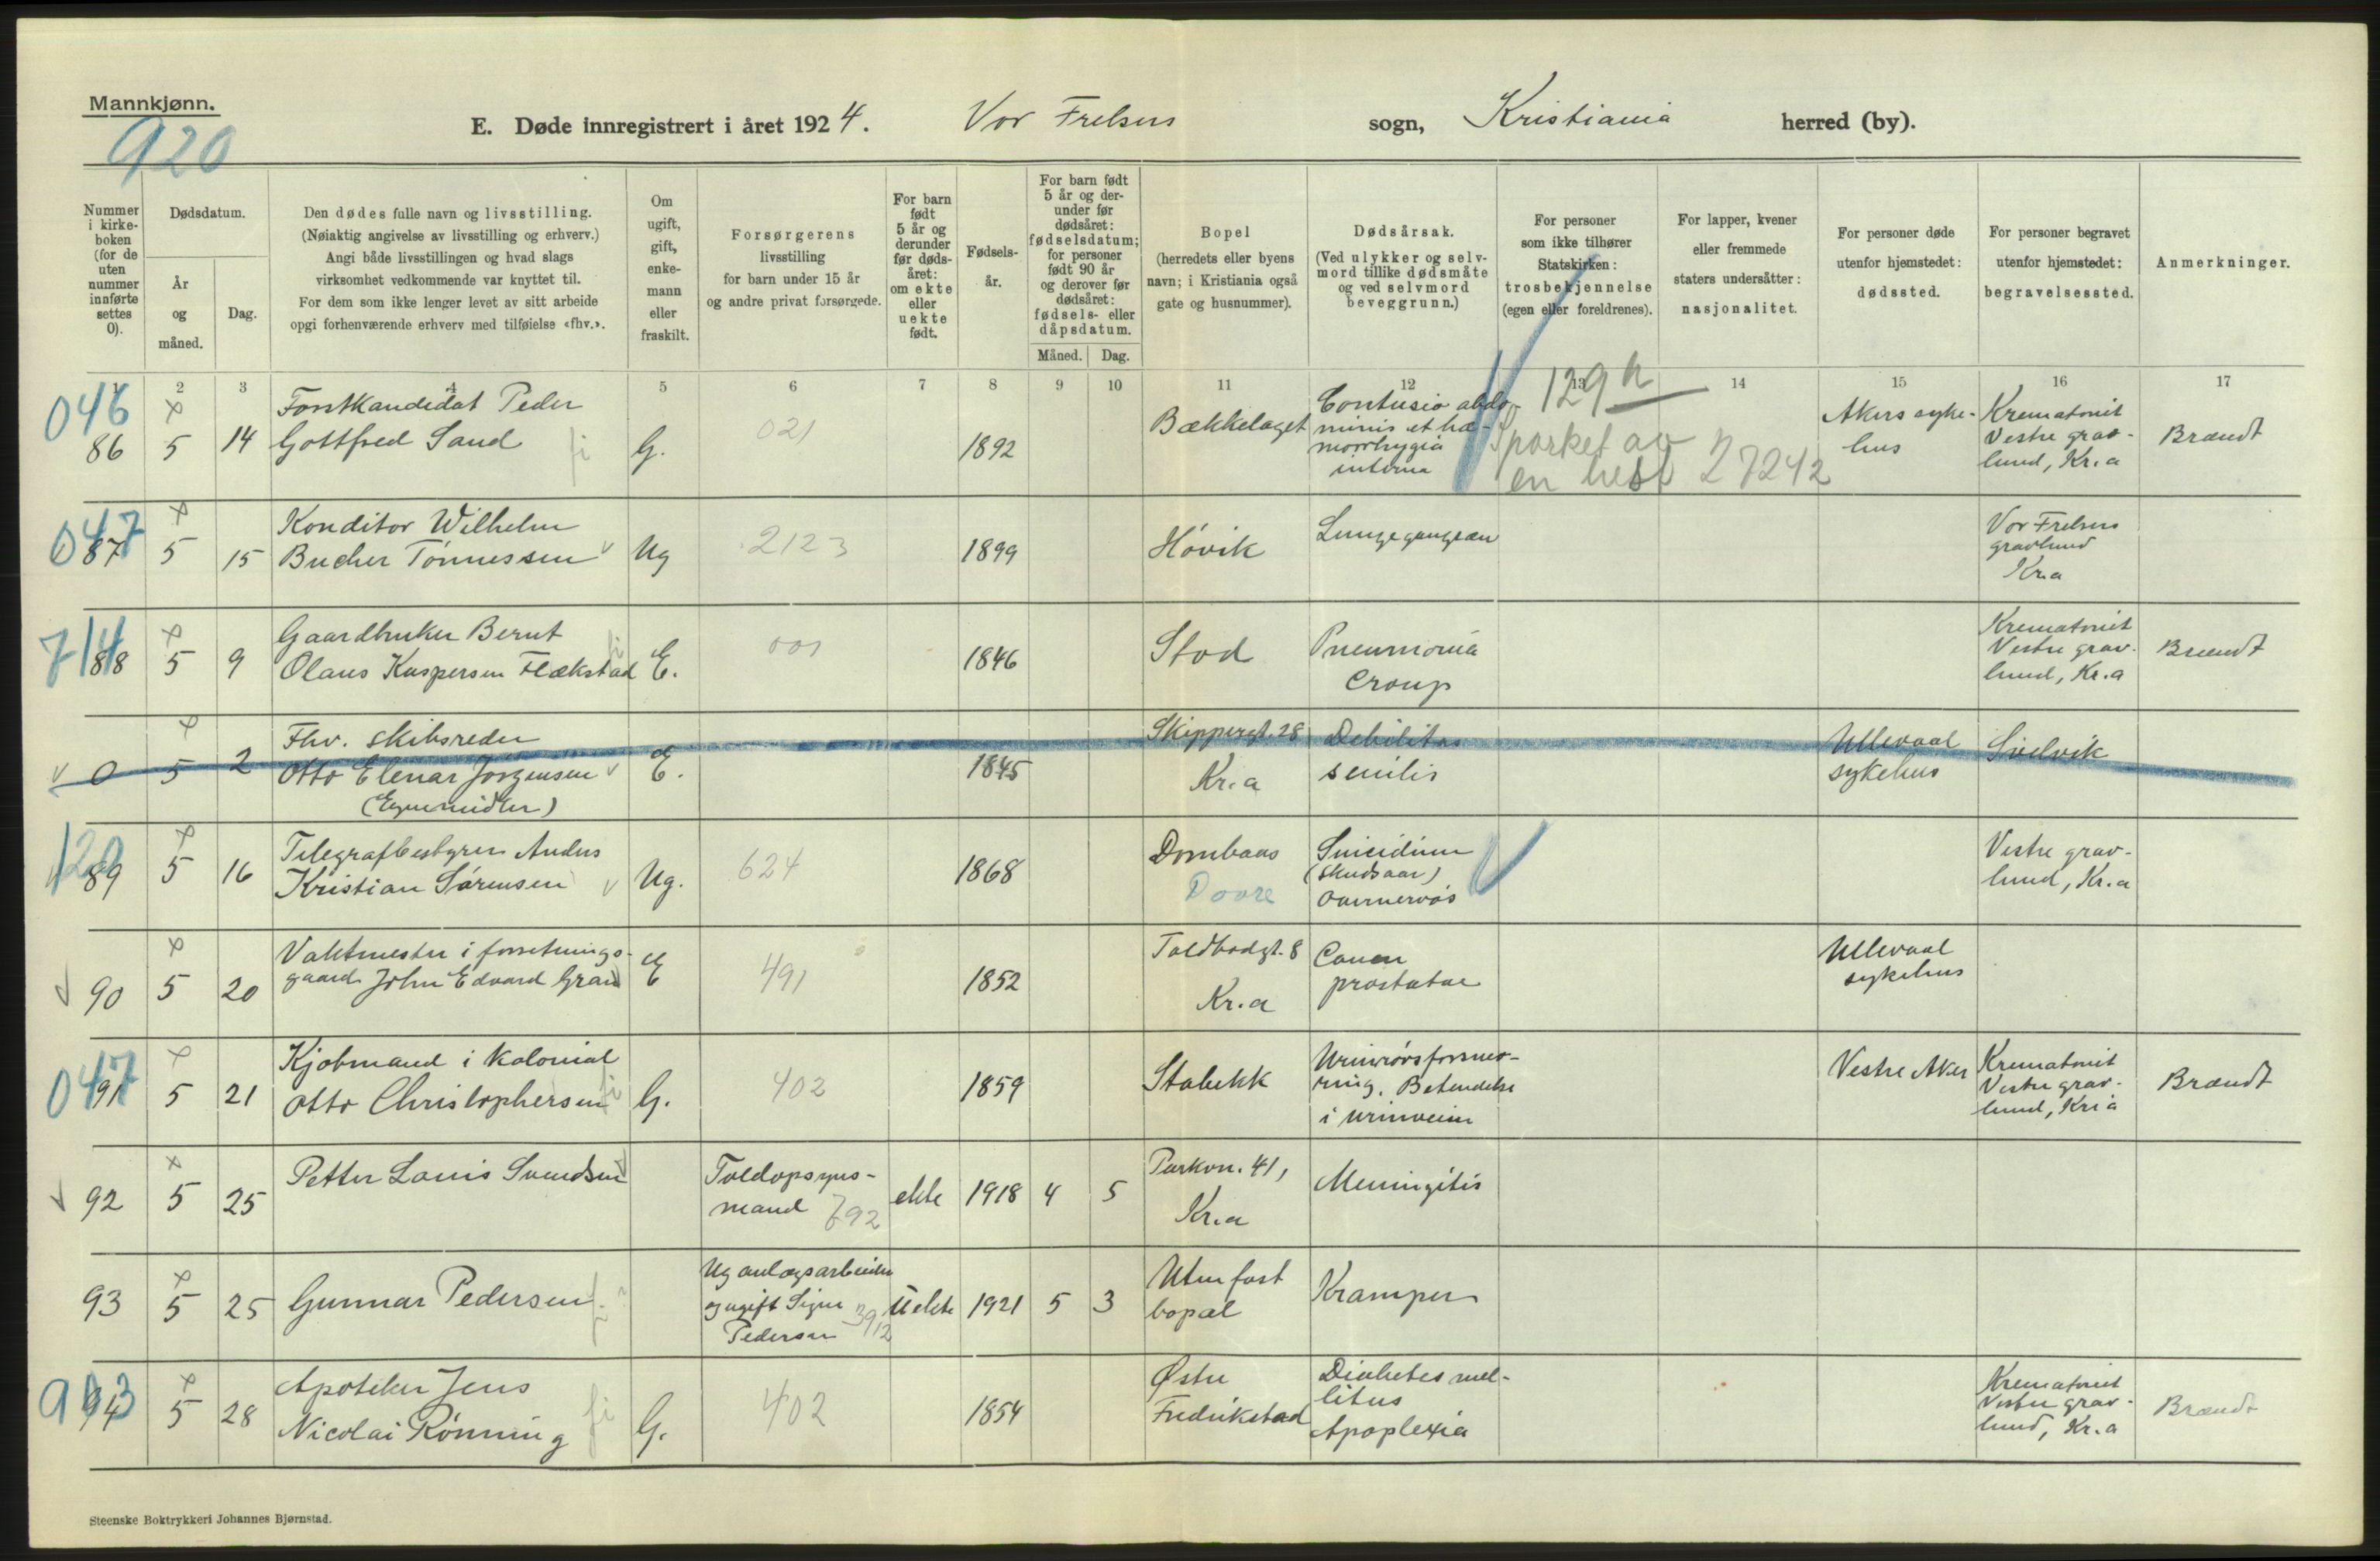 Mannkjønn.
920
E. Døde innregistrert i året 1924. Vor Frelsers sogn, Kristiania herred (by).
Nummer i kirke-boken (for de uten nummer innførte settes 0).
Dødsdatum.
År og måned.
Dag.
Den dødes fulle navn og livsstilling.
(Nøiaktig angivelse av livsstilling og erhverv.)
Angi både livsstillingen og hvad slags
virksomhet vedkommende var knyttet til.
For dem som ikke lenger levet av sitt arbeide
opgi forhenværende erhverv med tilføielse «fhv.».
Om ugift, gift, enke-mann eller fraskilt.
Forsørgerens
livsstilling
for barn under 15 år
og andre privat forsørgede.
For barn født 5 år og derunder før døds-året: om ekte eller uekte født.
Fødsels-år.
For barn født 5 år og der-under før dødsåret: fødselsdatum; for personer født 90 år og derover før dødsåret: fødsels- eller dåpsdatum.
Måned. Dag.
Bopel
(herredets eller byens
navn; i Kristiania også
gate og husnummer).
Dødsårsak.
(Ved ulykker og selv-
mord tillike dødsmåte
og ved selvmord
beveggrunn.)
For personer
som ikke tilhører
Statskirken:
trosbekjennelse
(egen eller foreldrenes).
For lapper, kvener
eller fremmede
staters undersåtter:
nasjonalitet.
For personer døde
utenfor hjemstedet:
dødssted.
For personer begravet
utenfor hjemstedet:
begravelsessted.
Anmerkninger.
1 2 3 4 5 6 7 8 9 10 11 12 13 14 15 16 17
046
86 5 14 Forstkandidat Peder
Gottfred Sand G. 021 1892 Bækkelaget
Contusio abdo-
minis et hæ-
morrhygia
interna
129 h
Sparket av
en hest 27242
Akers syke-
hus
Krematoriet
Vestre grav-
lund, Kr.a
Brændt
047
87 5 15 Konditor Wilhelm
Bucher Tönnessen Ug 2123 1899 Hövik Lungegangræn
Vor Frelsers
gravlund
Kr.a
714
88 5 9 Gaardbruker Bernt
Olaus Kaspersen Flækstad E. 001 1846 Stod
Pneumonia
Croup
Krematoriet
Vestre grav-
lund, Kr.a
Brændt
0 5 2 Fhv. skibsreder
Otto Elenar Jörgensen
(Egne midler) E. 1845
Skippergt. 28
Kr.a
Debilitas
senilis
Ullevaal
sykehus
Svelvik
120
89 5 16 Telegrafbestyrer Anders
Kristian Sörensen Ug. 624 1868
Dombaas
Dovre
Suicidium
(skudsaar)
Vestre grav-
lund, Kr.a
90 5 20 Vaktmester i forretnings-
gaard John Edvard Gran E 491 1852
Toldbodgt. 8
Kr.a
Cancer
prostatae
Ullevaal
sykehus
047
91 5 21 Kjøbmand i kolonial
Otto Christophersen G. 402 1859 Stabekk
Urinrörsforsnev-
ring. Betendelse
i urinveien
Vestre Aker
Krematoriet
Vestre grav-
lund, Kr.a
Brændt
92 5 25 Petter Louis Svendsen
Toldopsyns-
mand 792 ekte 1918 4 5
Parkvn. 41,
Kr.a
Meningitis
93 5 25 Gunnar Pedersen
Ug anlægsarbeider
og ugift Signe
Pedersen 3912 Uekte 1921 5 3
Uten fast
bopæl
Kramper
993
94 5 28 Apoteker Jens
Nicolai Rönning G. 402 1854
Østre
Fredrikstad
Diabetes mel-
litus
Apoplexia
Krematoriet
Vestre grav-
lund, Kr.a
Brændt
Steenske Boktrykkeri Johannes Bjørnstad.